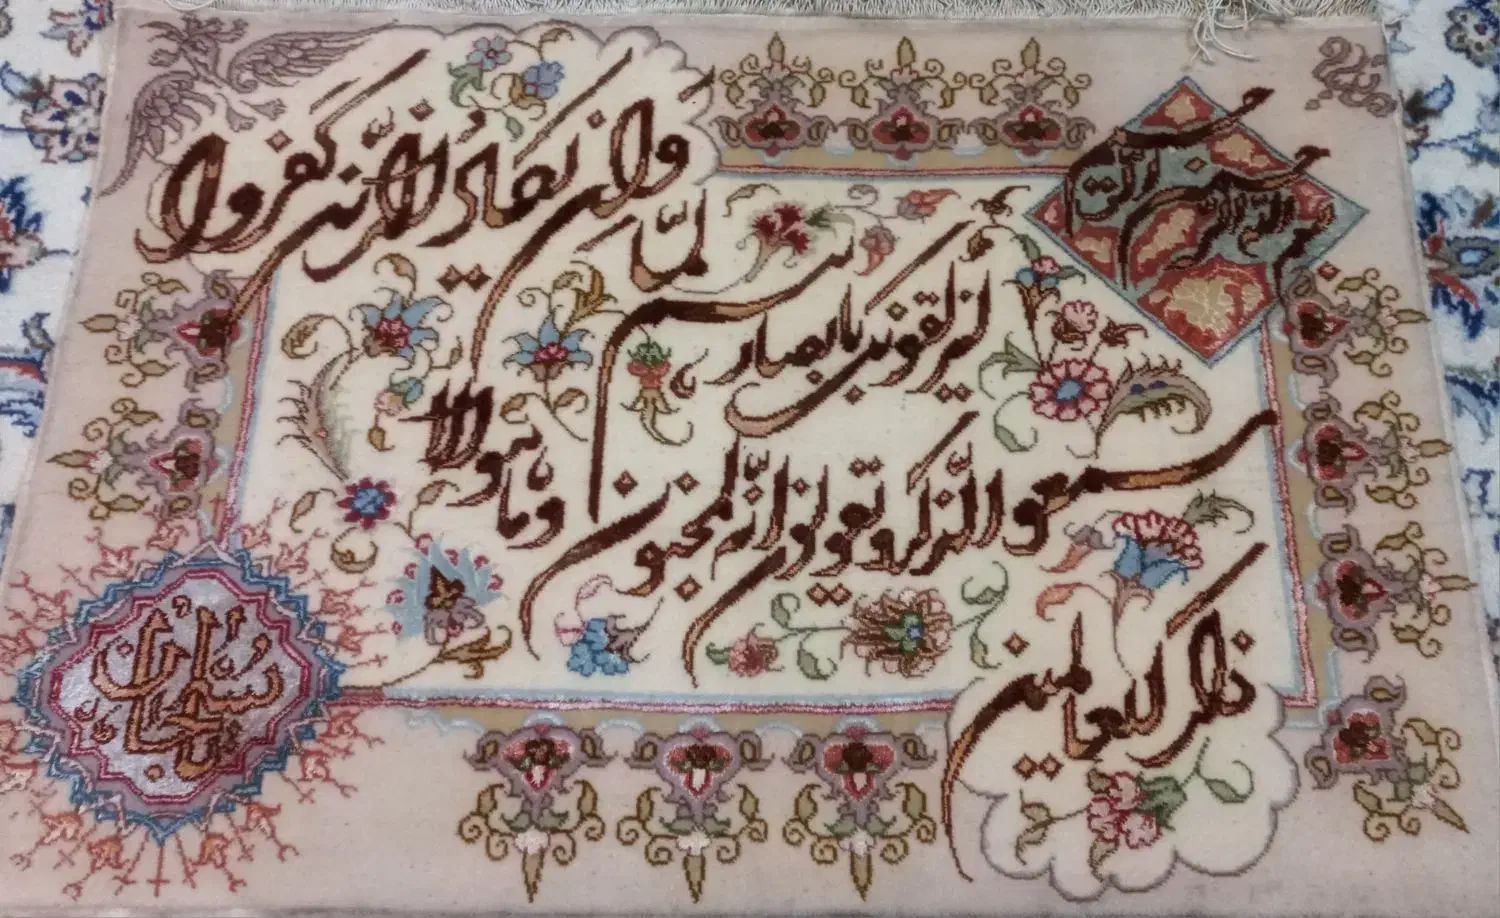 بسم الله الرحمن الرحیم
وان یکاد الذین کفروا
لیزلقونک بابصارهم لما
سمعوا الذکر و یقولون انه لمجنون
وما هو الا
ذکر للعالمین